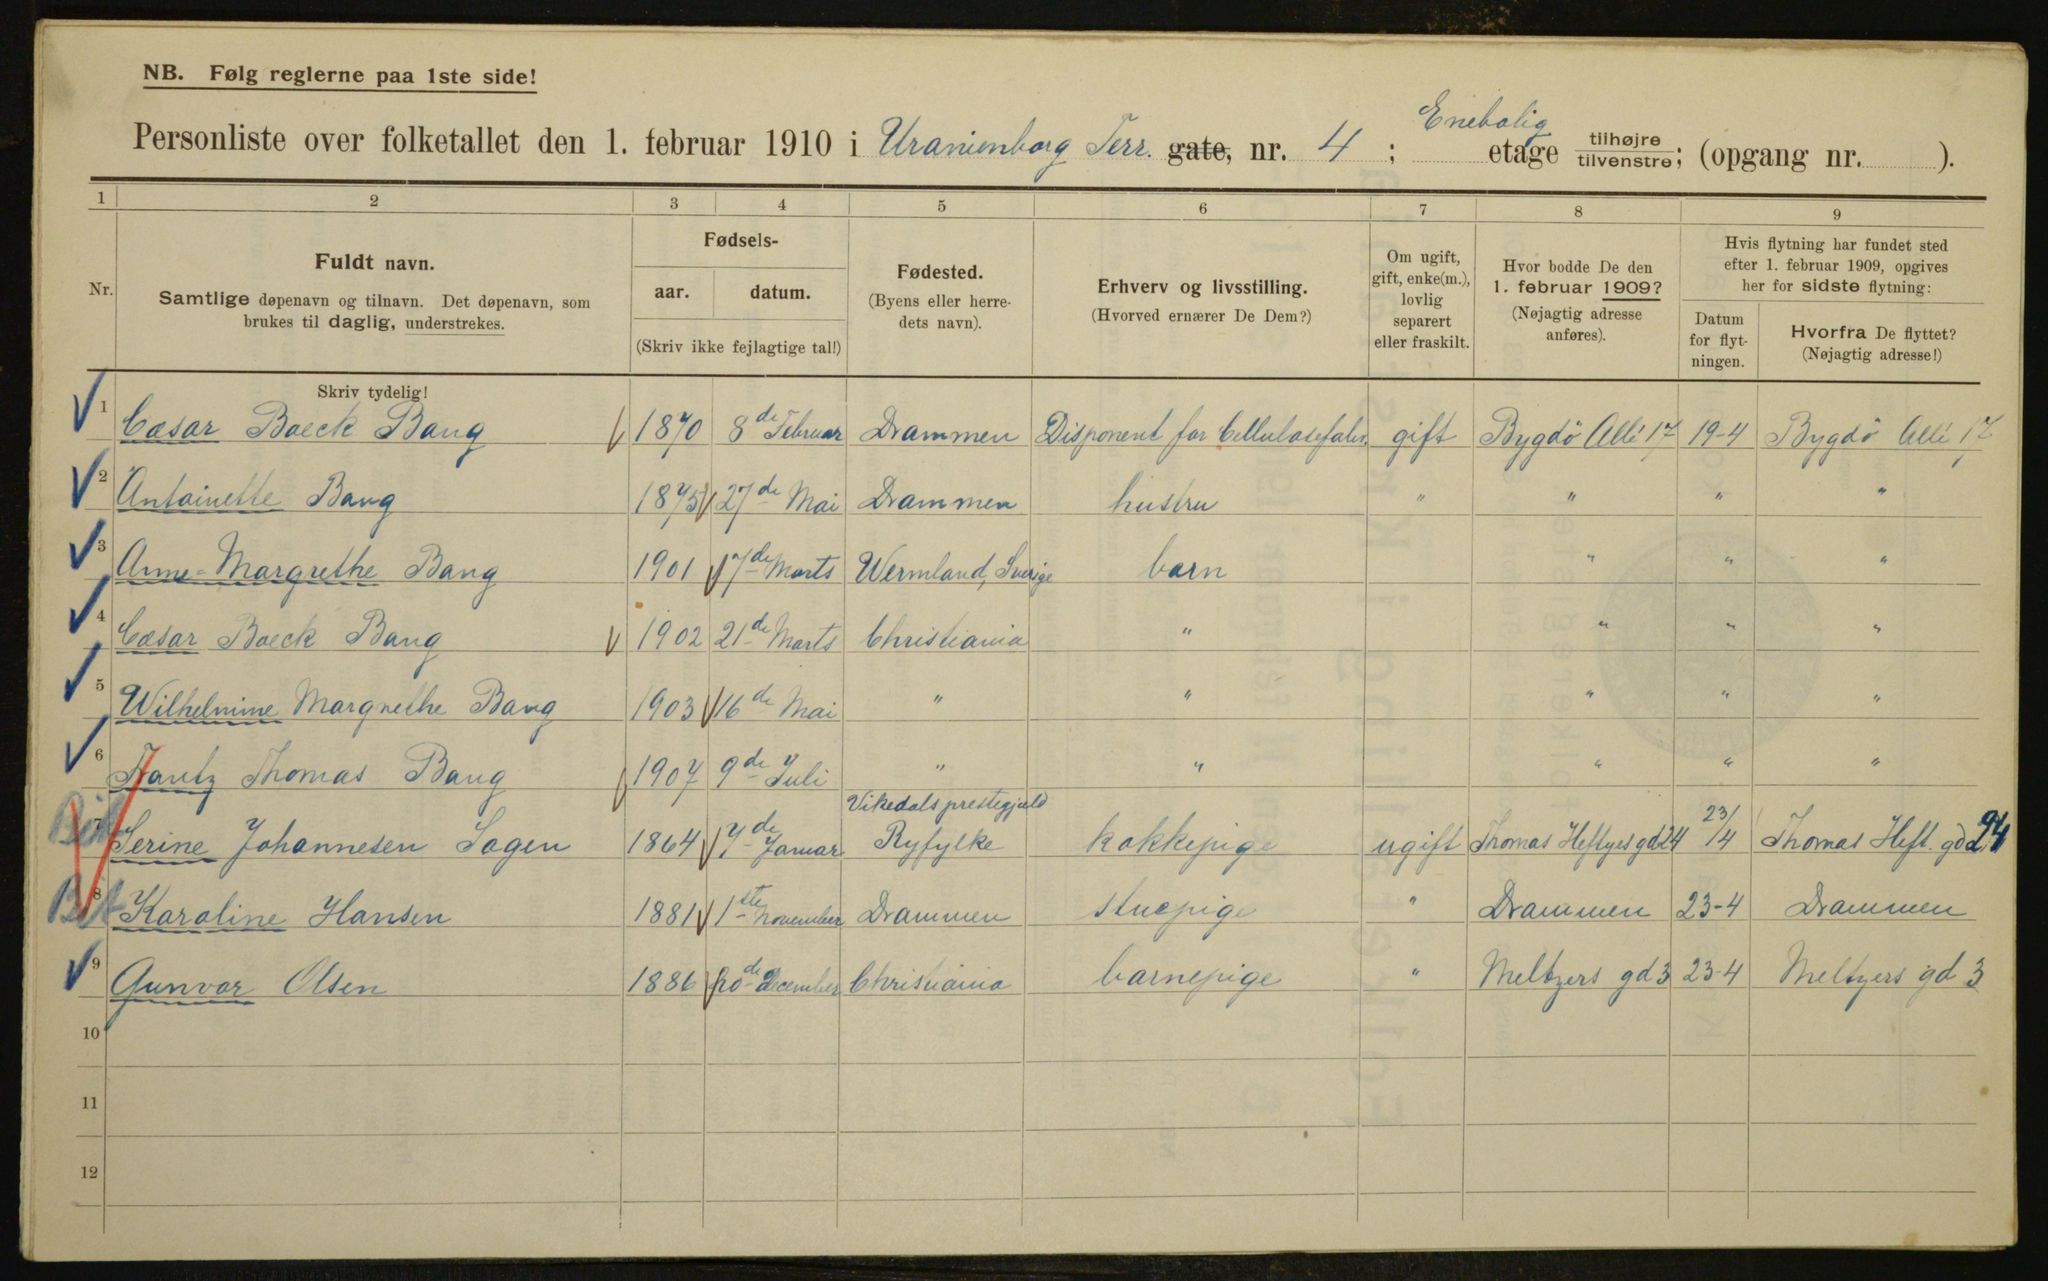 NB. Følg reglerne paa 1ste side!
Personliste over folketallet den 1. februar 1910 i Uranienborg Terr. gate, nr. 4 ; Enebolig etage tilhøjre/tilvenstre; (opgang nr. ).
1 2 3 4 5 6 7 8 9
Nr.
Fuldt navn.
Samtlige døpenavn og tilnavn. Det døpenavn, som
brukes til daglig, understrekes.
Skriv tydelig!
Fødsels-
aar. datum.
(Skriv ikke fejlagtige tal!)
Fødested.
(Byens eller herre-
dets navn).
Erhverv og livsstilling.
(Hvorved ernærer De Dem?)
Om ugift,
gift, enke(m.),
lovlig
separert
eller fraskilt.
Hvor bodde De den
1. februar 1909?
(Nøjagtig adresse
anføres).
Hvis flytning har fundet sted
efter 1. februar 1909, opgives
her for sidste flytning:
Datum
for flyt-
ningen.
Hvorfra De flyttet?
(Nøjagtig adresse!)
1 Cæsar Boeck Bang 1870 8de Februar Drammen Disponent for Cellulosefabr. gift Bygdö Allé 17 19-4 Bygdö Allé 17
2 Antoinette Bang 1875 27de Mai Drammen hustru " " " "
3 Anne-Margrethe Bang 1901 17de Marts Wermland, Sverige barn " " "
4 Cæsar Boeck Bang 1902 21de Marts Christiania " " " "
5 Wilhelmine Margrethe Bang 1903 16de Mai " " " " "
6 Frantz Thomas Bang 1907 9de Juli " " " " "
Vikedals prestegjæld
7 Serine Johannesen Sagen 1864 7de Januar Ryfylke kokkepige ugift Thomas Heftyes gd 24 23/4 Thomas Heft. gd 24
8 Karoline Hansen 1881 1ste November Drammen stuepige " Drammen 23-4 Drammen
9 Gunvor Olsen 1886 20de December Christiania barnepige " Meltzers gd 3 23-4 Meltzers gd 3
10
11
12